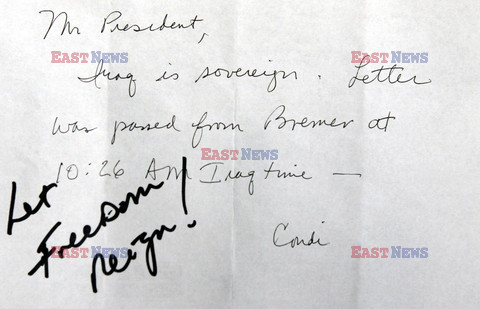 Mr President,
Iraq is sovereign. Letter
was passed from Bremer at
10:26 AM Iraq time —
Condi
Let
Freedom
Reign!
EASTNEWS
EASTNEWS
EASTNEWS
EASTNEWS
EASTNEWS